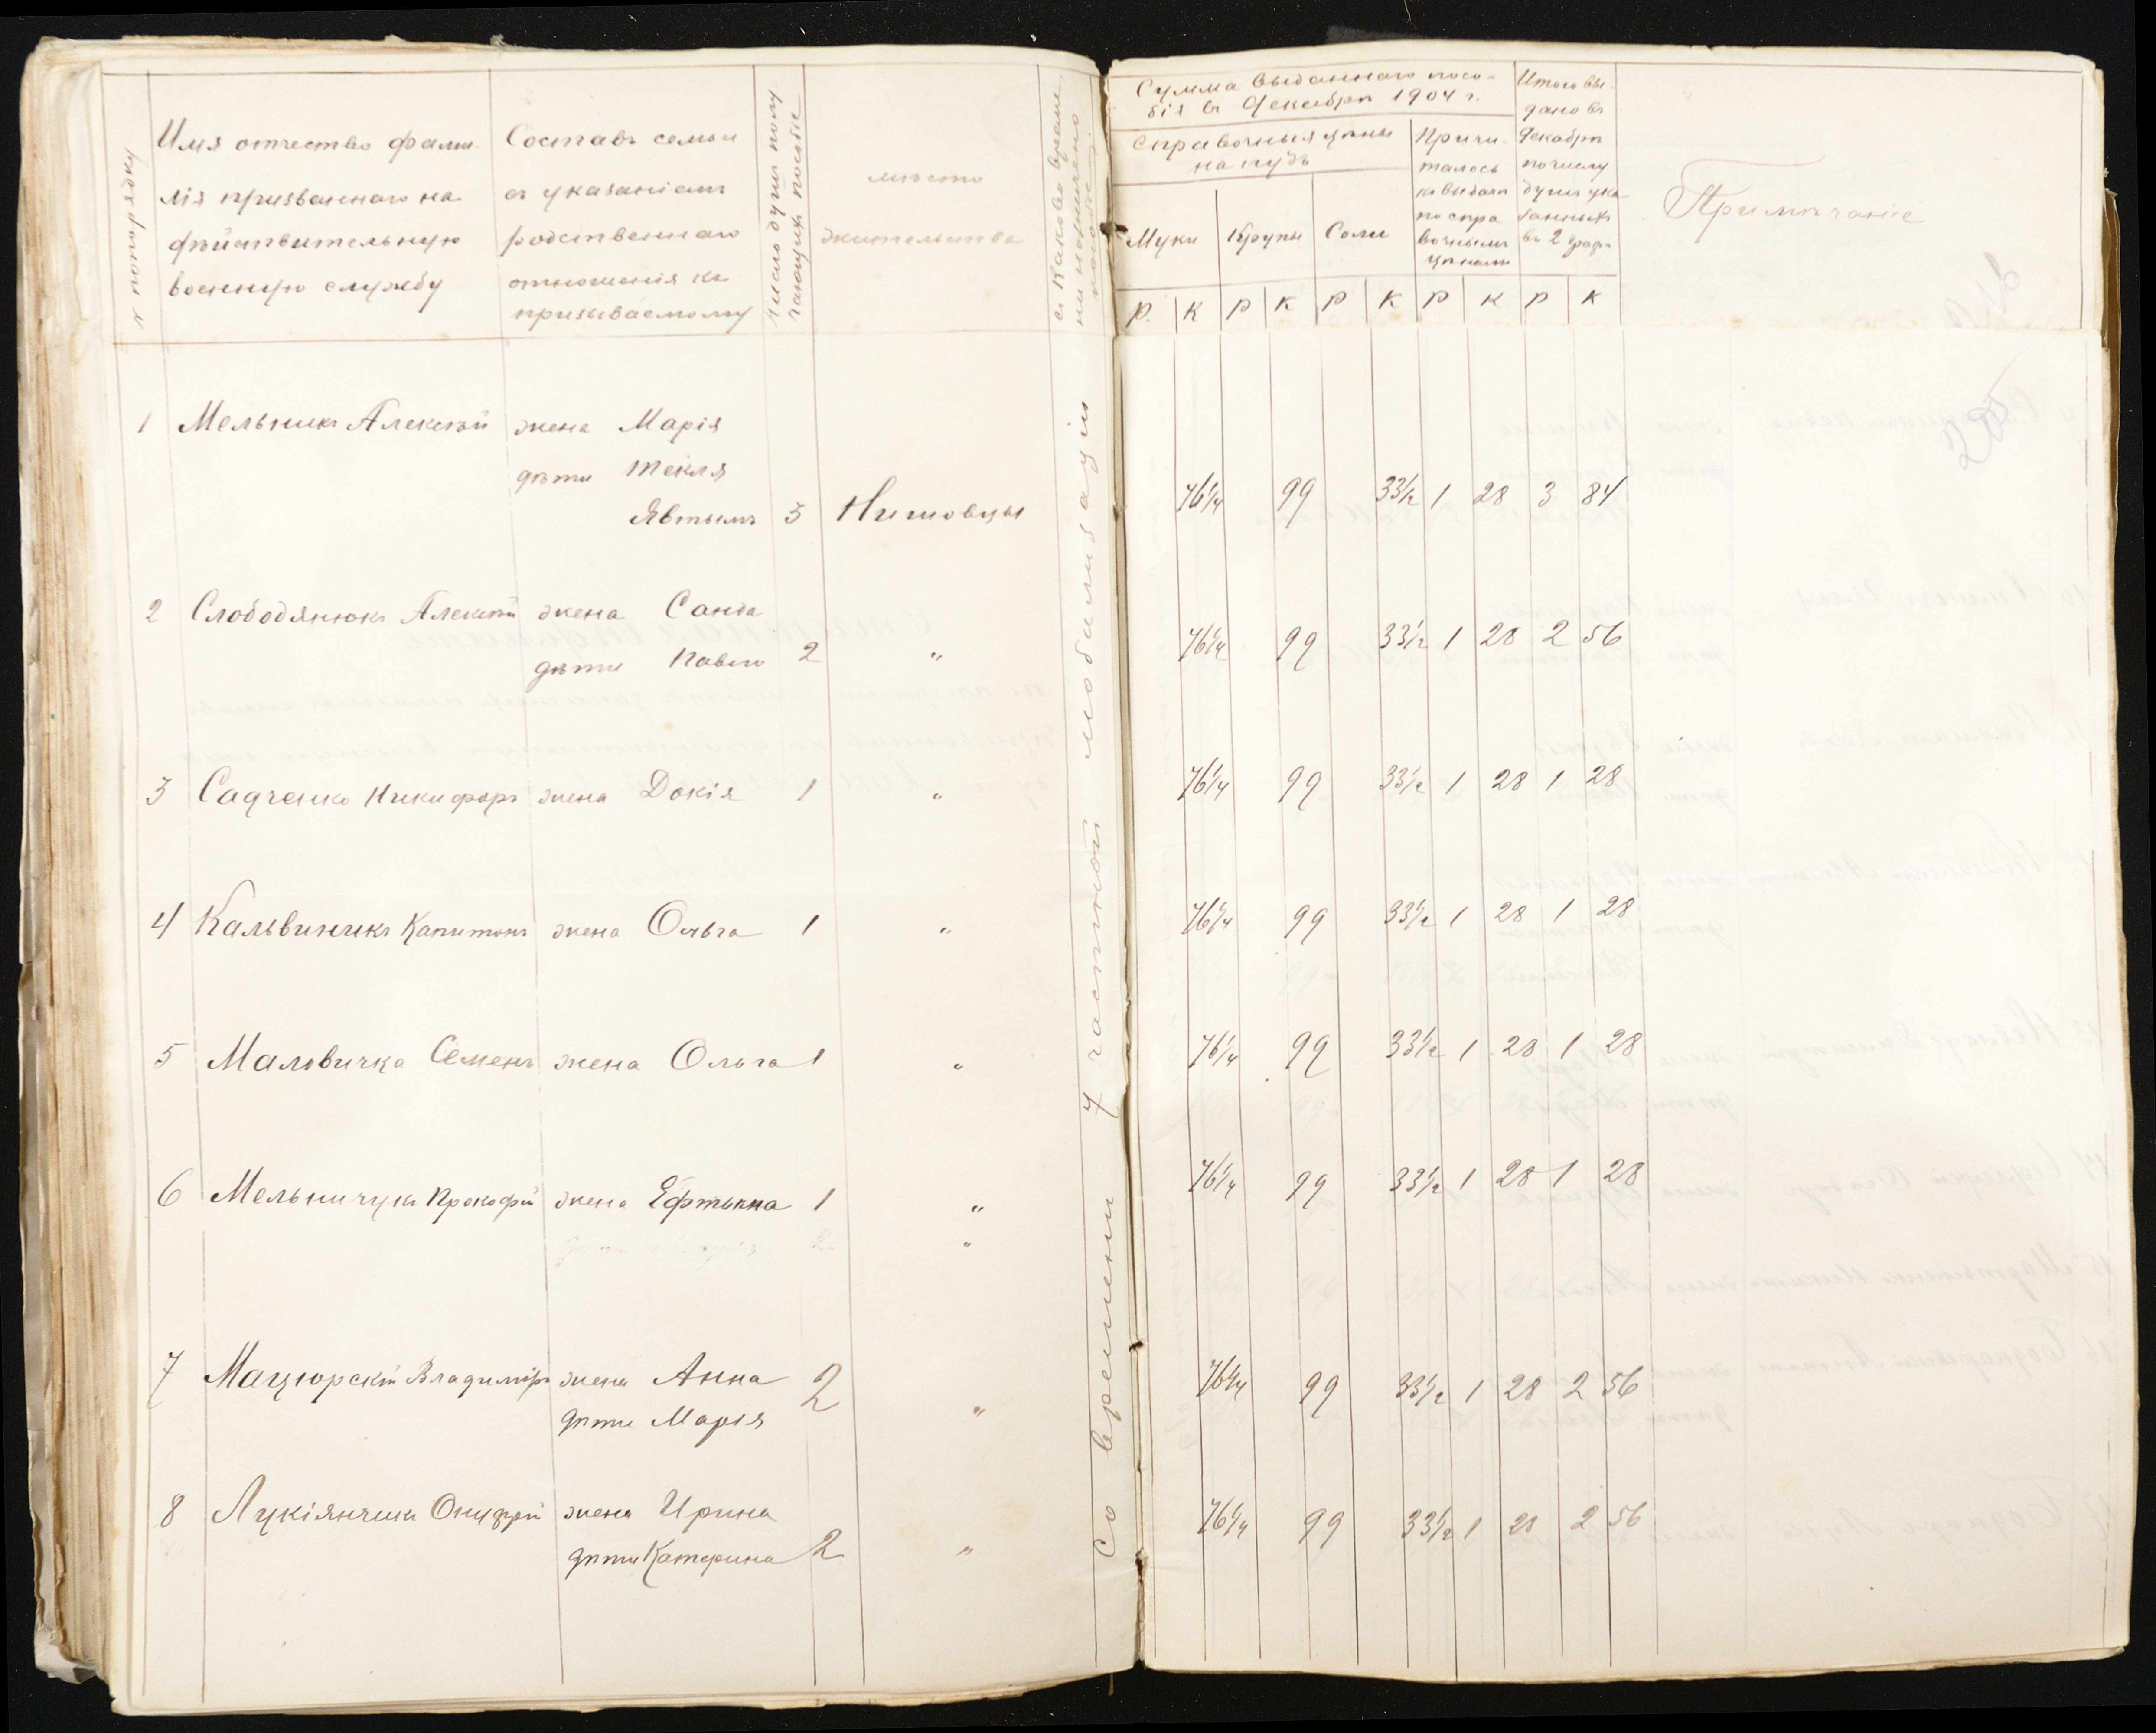 № по порядку
Имя отчество фами-
лія призваннаго на
дѣйствительную
военную службу
Составъ семьи
съ указаніемъ
родственнаго
отношенія къ
призываемому
число душъ полу
чающихъ пособіе
мѣсто
жительства
съ какого време
ни назначено
пособіе
Сумма выданнаго посо-
бія въ Декабрѣ 1904 г.
Справочныя цѣны
на пудъ
Муки
Крупы
Соли
Причи-
талось
къ выдачѣ
по спра
вочнымъ
цѣнамъ
Итого вы-
дано въ
Декабрѣ
по числу
душъ ука
занныхъ
въ 2 графѣ
Примѣчаніе
Р. К Р К Р К Р К Р К
Со времени 7 частной мобилизаціи
1 Мельникъ Алексѣй жена Марія
дѣти Текля
Явтымъ 3 76¼ 99 33½ 1 28 3 84
2 Слободянюкъ Алексѣй жена Санда
дѣти Павло 2 " 76¼ 99 33½ 1 28 2 56
3 Садченко Никифоръ жена Докія 1 " 76¼ 99 33½ 1 28 1 28
4 Кальвиникъ Капитонъ жена Ольга 1 " 76¼ 99 33½ 1 28 1 28
5 Маловичка Семенъ жена Ольга 1 " 76¼ 99 33½ 1 28 1 28
6 Мельничукъ Прокофій жена Ефтынна 1 " 76¼ 99 33½ 1 28 1 28
"
7 Мацюрскій Владиміръ жена Анна 2 76¼ 99 33½ 1 28 2 56
дѣти Марія "
8 Лукіянчикъ жена Ирина 76¼ 99 33½ 1 28 2 56
дѣти Катерина 2 "